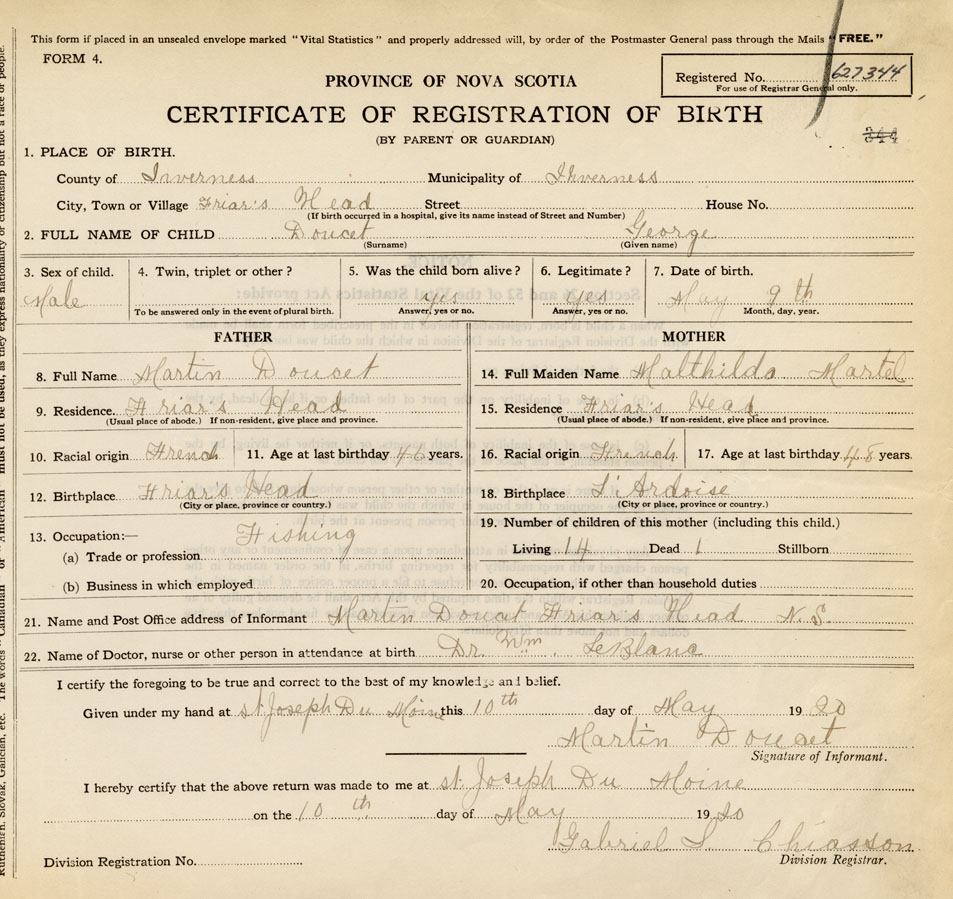 This form if placed in an unsealed envelope marked "Vital Statistics" and properly addressed will, by order of the Postmaster General pass through the Mails "FREE."
FORM 4.
Registered No. 627344
For use of Registrar General only.
PROVINCE OF NOVA SCOTIA
CERTIFICATE OF REGISTRATION OF BIRTH
344
(BY PARENT OR GUARDIAN)
1. PLACE OF BIRTH.
County of Inverness Municipality of Inverness
City, Town or Village Friar's Head Street House No.
(If birth occurred in a hospital, give its name instead of Street and Number)
2. FULL NAME OF CHILD Doucet George
(Surname) (Given name)
3. Sex of child. 4. Twin, triplet or other? 5. Was the child born alive? 6. Legitimate? 7. Date of birth.
Male yes yes May 9th
To be answered only in the event of plural birth. Answer, yes or no. Answer, yes or no. Month, day, year.
FATHER MOTHER
8. Full Name Martin Doucet 14. Full Maiden Name Malthilda Martel
9. Residence. Friar's Head 15. Residence Friar's Head
(Usual place of abode.) If non-resident, give place and province. (Usual place of abode.) If non-resident, give place and province.
10. Racial origin French 11. Age at last birthday 46 years. 16. Racial origin French 17. Age at last birthday years.
12. Birthplace Friar's Head 18. Birthplace L'Ardoise
(City or place, province or country.) (City or place, province or country.)
13. Occupation:— Fishing 19. Number of children of this mother (including this child.)
(a) Trade or profession Living 14 Dead 1 Stillborn
(b) Business in which employed 20. Occupation, if other than household duties
21. Name and Post Office address of Informant Martin Doucet Friar's Head N.S.
22. Name of Doctor, nurse or other person in attendance at birth Dr. Wm. LeBlanc
I certify the foregoing to be true and correct to the best of my knowledge and belief.
Given under my hand at St Joseph Du Moine this 10th day of May 1920
Martin Doucet
Signature of Informant.
I hereby certify that the above return was made to me at St. Joseph Du Moine
on the 10th day of May 1920
Gabriel S. Chiasson
Division Registration No. Division Registrar.